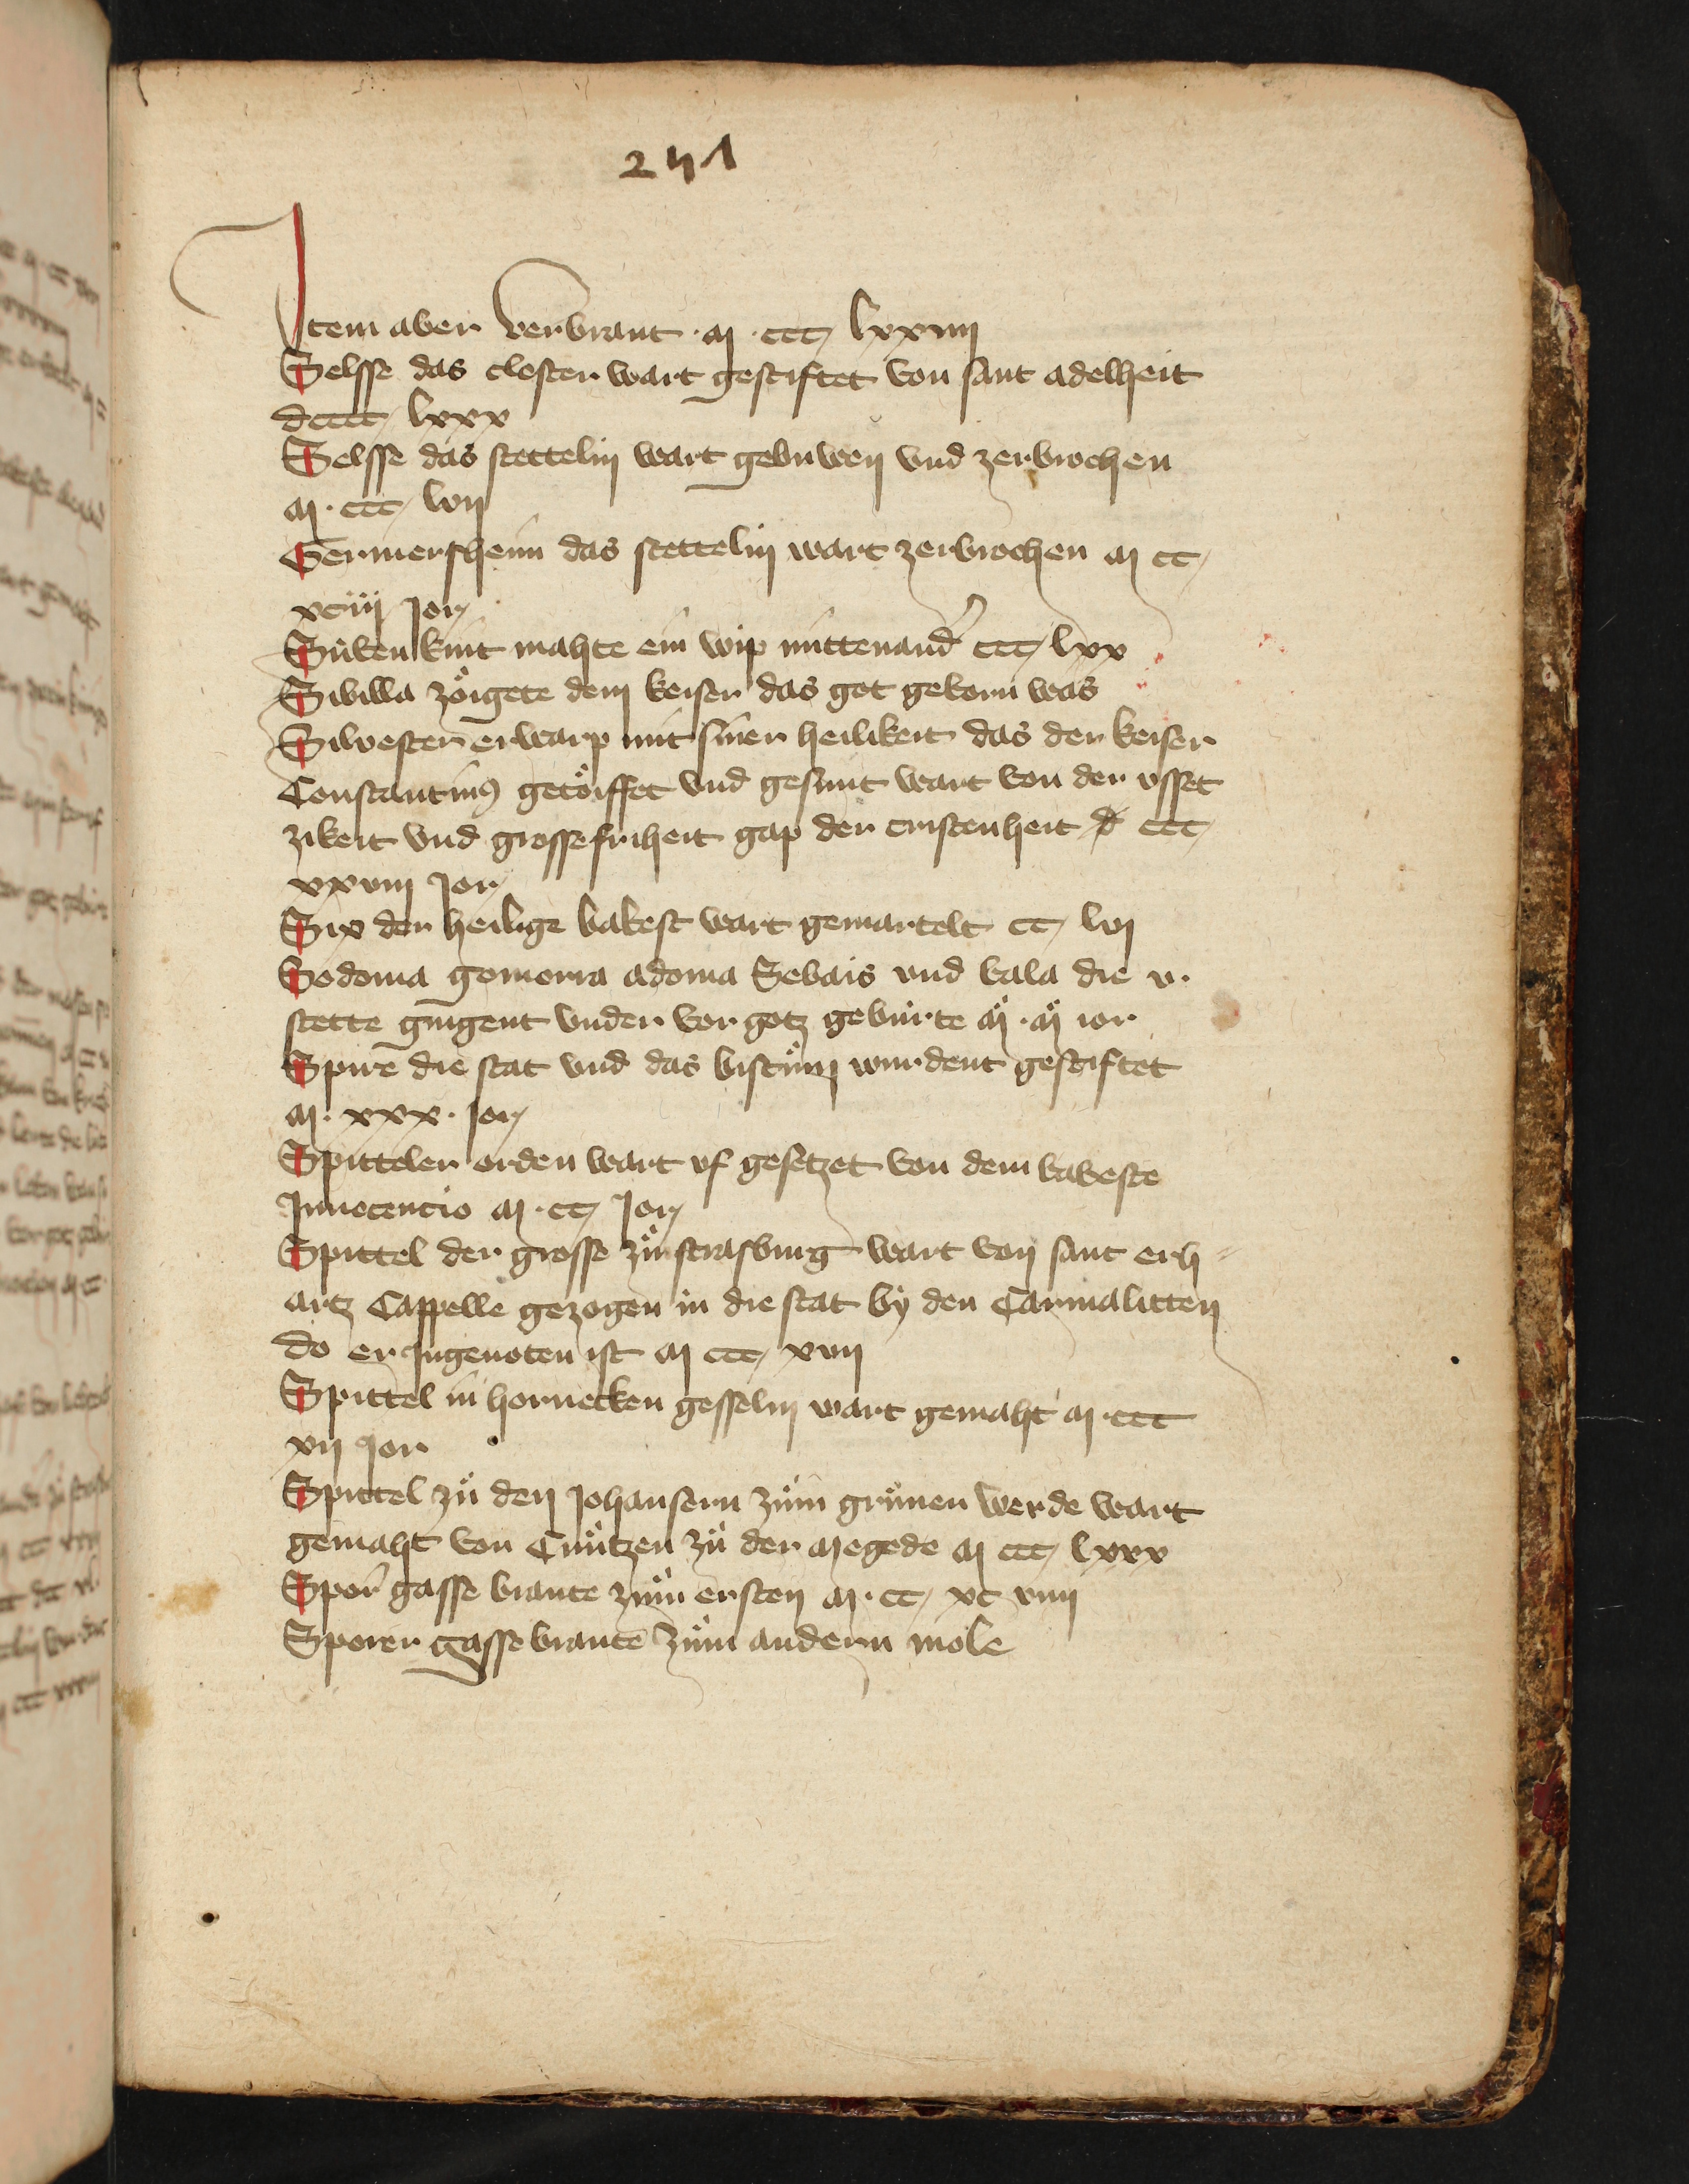 241
Item aber verbrant · m · ccc lxxiiii
Selsse das closter wart gestiftet von sant adelheit
dcccc lxxx
Selsse das stettelin wart gebuwen vnd zerbrochen
m · ccc lvii
Germersheim das stettelin wart zerbrochen m cc
xciiij Jor
Süben kint mahte ein wip mittenand' ccc lxx
Sibilla zöigete dem keiser das got geborn was
Silvester erwarp mit siner heilikeit das der keiser
Constantinus getöiffet vnd gesunt wart von der vsset
zikeit vnd grosse friheit gap der cristenheit ccc
xxviii Jor
Six der heilige bobest wart gemartelt cc lvi
Sodoma gomorra adoma Sebais vnd bala die v ·
stette gingent vnder vor gotz gebürte m · m ior
Spire die stat vnd das bistüm wurdent gestiftet
m · xxx · Jor
Spitteler orden wart vf gesetzet von dem bobeste
Innocencio m · cc Jor
Spittel der grosse zü strasburg wart von sant erh=
artz Cappelle gezogen in die stat by den Carmalitten
do er ingenoten ist m ccc xvii
Spittel in hornecken gesselin wart gemaht m · ccc
xii Jor
Spittel zü den Johansern züm grünen werde wart
gemaht von Cüntzen zü der megede m ccc lxxx
Sporer gasse brante züm ersten m · cc xc viii
Sporer gasse brante züm andern mole